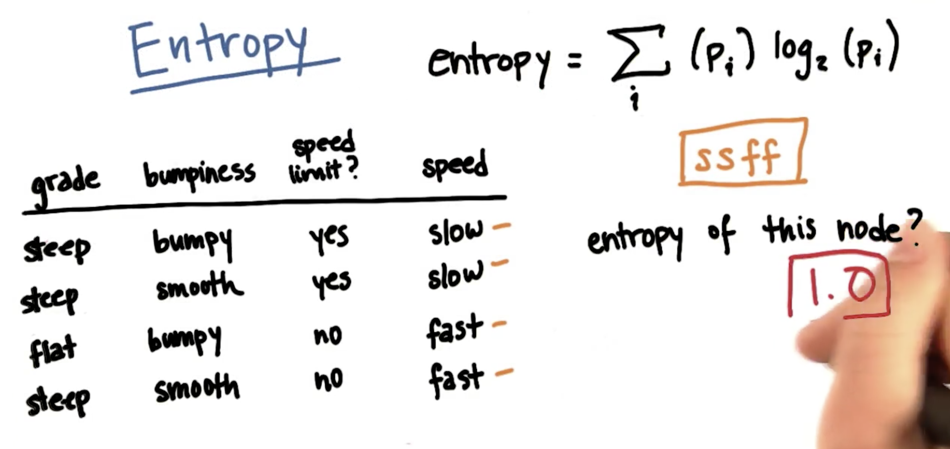 Entropy
entropy = Σ (pᵢ) log₂ (pᵢ)
i
ssff
grade bumpiness speed limit? speed
steep bumpy yes slow –
steep smooth yes slow –
flat bumpy no fast –
steep smooth no fast –
entropy of this node?
1.0